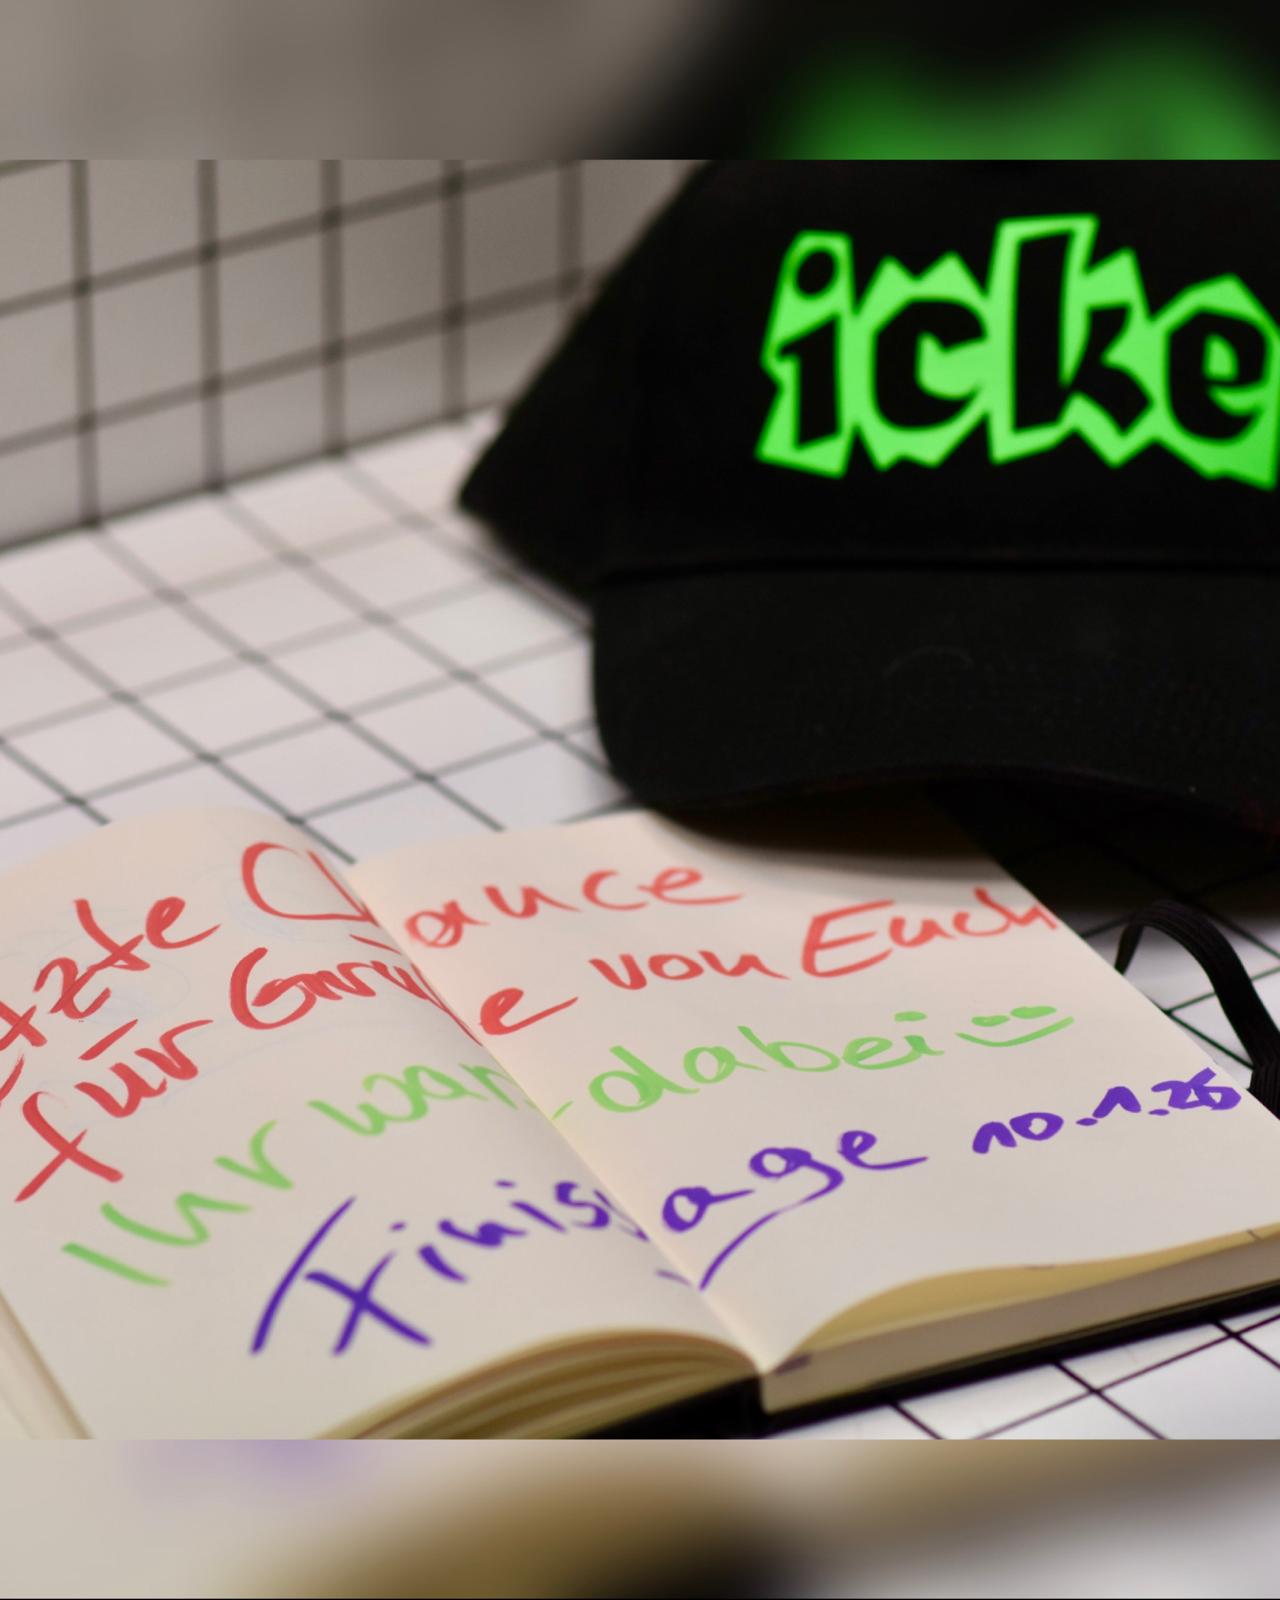 icke
tzte Chance
für Grüße von Euch
Ihr wart dabei :)
Finissage 10.1.26